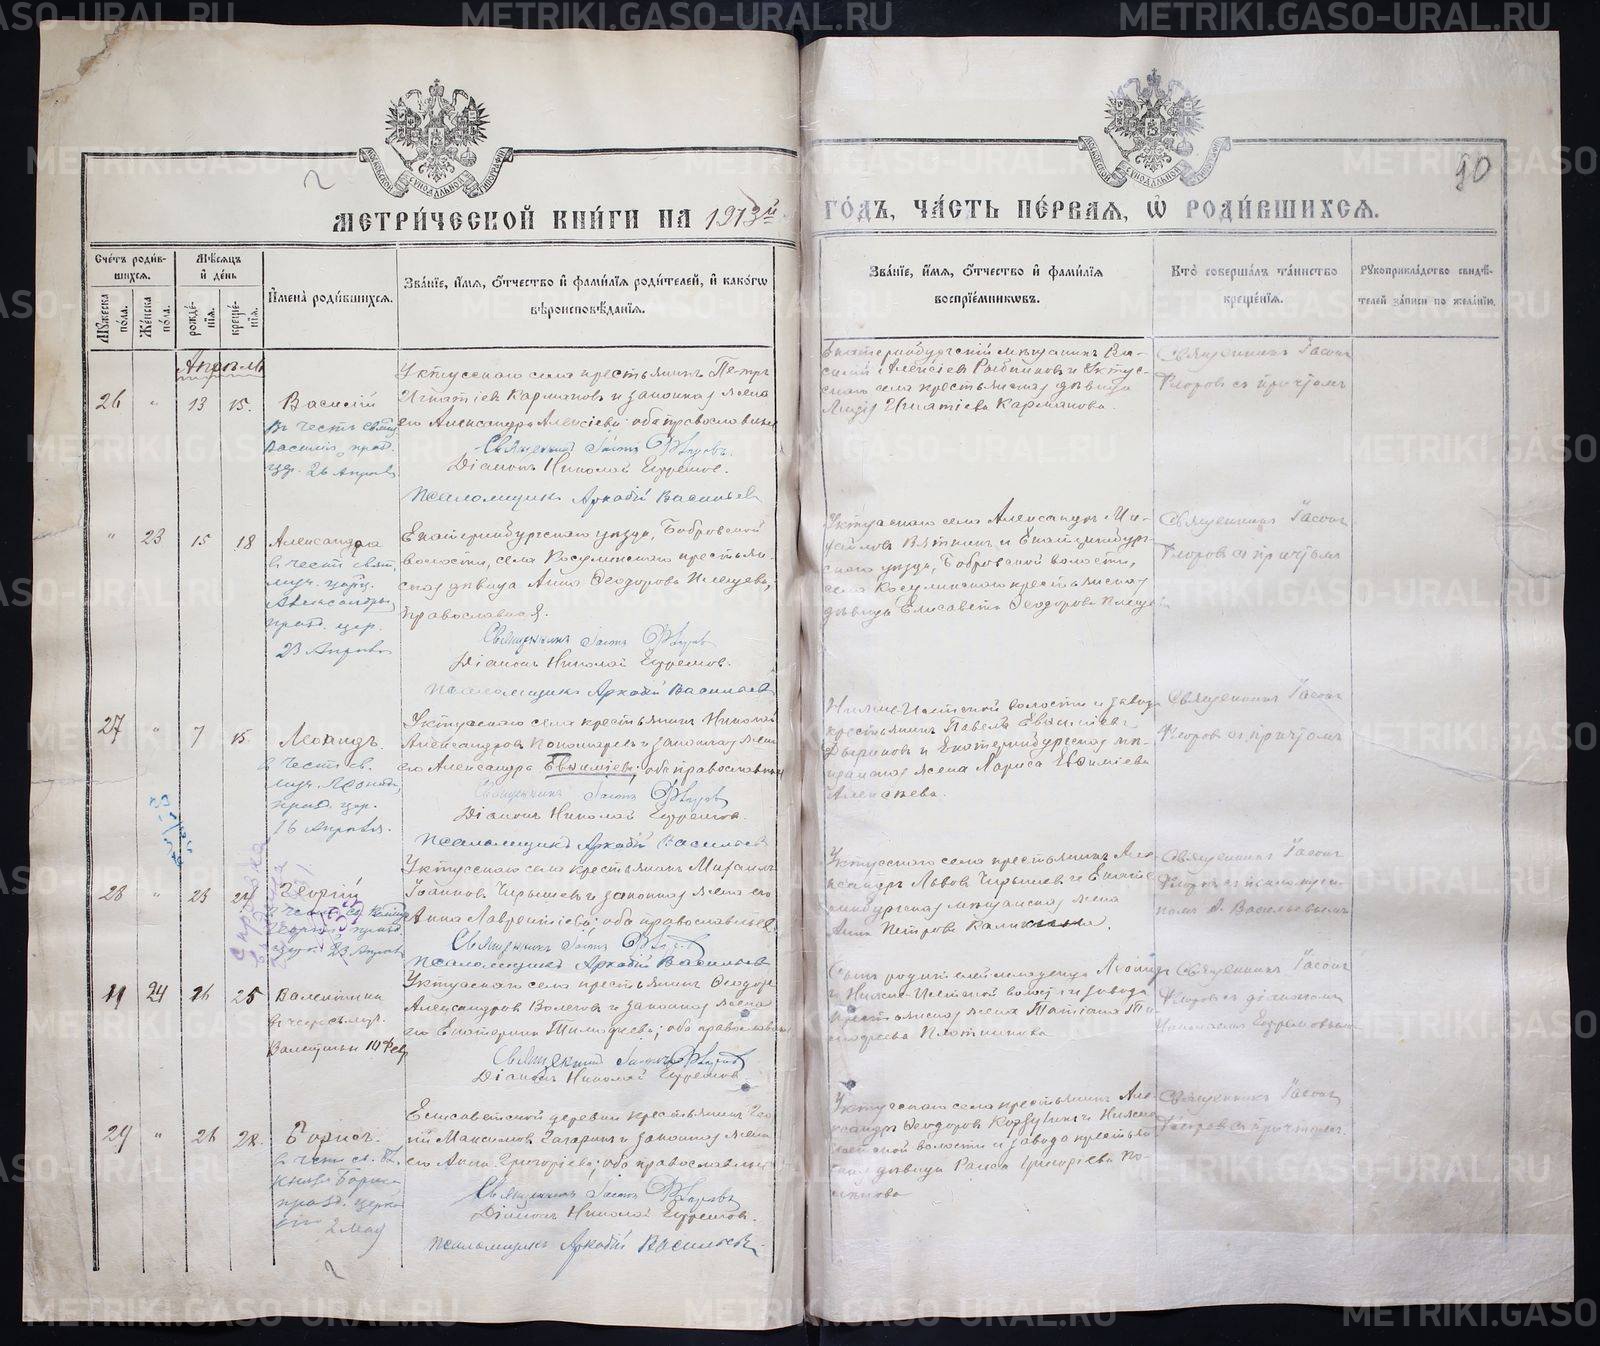 METRIKI.GASO-URAL.RU
МОСКОВСКОЙ СѴНОДАЛЬНОЙ ТИПОГРАФІИ
МОСКОВСКОЙ СѴНОДАЛЬНОЙ ТИПОГРАФІИ
90
МЕТРИ́ЧЕСКОЙ КНИ́ГИ НА 1913й ГО́ДЪ, ЧА́СТЬ ПЕ́РВАЯ, Ѡ РОДИ́ВШИХСЯ.
Сче́тъ роди́вшихся.
Мѣ́сяцъ и де́нь
Му́жеска по́ла.
Же́нска по́ла.
рожде́нія.
креще́нія.
И҆мена̀ роди́вшихся.
Зва́ніе, и҆́мя, ѻ҆́тчество и҆ фами́лія роди́телей, и҆ како́гѡ вѣроисповѣ́данія.
Зва́ніе, и҆́мя, ѻ҆́тчество и҆ фами́лія воспріе́мниковъ.
Кто̀ соверша́лъ та́инство креще́нія.
Рукоприкла́дство свидѣ́телей за́писи по жела́нію.
Апрѣль
26 " 13 15. Василій
въ честь свящ.
Василія, празд.
цер. 26 Апрѣля
Уктусскаго села крестьянинъ Петръ
Игнатіевъ Кармановъ и законная жена
его Александра Алексіева; оба православные
Священникъ Іасонъ Флоровъ.
Діаконъ Николай Ефремов.
Псаломщикъ Аркадій Васильевъ
Екатеринбургскій мѣщанинъ Ва-
силій Алексіевъ Рыбниковъ и Уктус-
скаго села крестьянская дѣвица
Лидія Игнатіева Карманова.
Священникъ Іасонъ
Флоровъ съ причтомъ
" 23 15 18 Александра
в честь свят.
муч. цариц.
Александры
празд. цер.
23 Апрѣля
Екатеринбургскаго уѣзда, Бобровской
волости, села Косулинскаго крестьян-
ская дѣвица Анна Ѳеодорова Плещева,
православная.
Священникъ Іасонъ Флоровъ
Діаконъ Николай Ефремов.
Псаломщикъ Аркадій Васильевъ
Уктусскаго села Александръ
Вяткинъ и Екатеринбург-
скаго уѣзда, Бобровской волости,
села Косулинскаго крестьянская
дѣвица Елисавета Ѳеодорова Плеще
Священникъ Іасонъ
Флоровъ съ причтомъ
27 " 7 15 Леонидъ.
в честь св.
муч. Леонида,
празд. цер.
16 Апрѣля.
Уктусскаго села крестьянинъ Николай
Александровъ Пономаревъ и законная жена
его Александра Евѳиміева; оба православные
Священникъ Іасонъ Флоровъ
Діаконъ Николай Ефремов.
Псаломщикъ Аркадій Васильевъ
Нижне-Исетской волости и завода
крестьянинъ Павелъ Евѳиміевъ
и Екатеринбургская мѣ-
щанская жена Лариса Евѳиміева
Алексѣева.
Священникъ Іасонъ
Флоровъ съ причтомъ
28 " 23 24 Георгій
Георгій празд.
цер. 23 Апрѣля
Справка выдана
Уктусскаго села крестьянинъ Михаилъ
Іоанновъ Чирышевъ и законная жена его
Анна Лаврентіева; оба православные.
Священникъ Іасонъ Флоровъ
Псаломщикъ Аркадій Васильевъ
Уктусскаго села крестьянинъ Але-
ксандръ Львовъ Чирышев и Екате-
ринбургская мѣщанская жена
Анна Петрова Калинина.
Священникъ Іасонъ
Флоровъ съ псаломщи-
комъ А. Васильевымъ
" 24 16 25 Валентина
в честь муч.
Валентины 10 Февр
Уктусскаго села крестьянинъ Ѳеодоръ
Александровъ Волеговъ и законная жена
его Екатерина Тимоѳеева; оба православные
Священникъ Іасонъ Флоровъ
Діаконъ Николай Ефремов.
Сынъ родителей младенца Леонидъ
и Нижне-Исетской волости и завода
крестьянская жена Татіана Ти-
моѳеева Плотникова
Священникъ Іасонъ
Флоровъ съ діакономъ
Николаемъ Ефремовымъ
29 " 26 28. Борисъ.
в честь св. Бл.
Князя Бориса
празд. церко-
вію 2 мая
Елисаветской деревни крестьянинъ
Максимовъ Гагаринъ и законная жена
его Анна Григоріева; оба православные
Священникъ Іасонъ Флоровъ
Діаконъ Николай Ефремов.
Псаломщикъ Аркадій Васильевъ.
Уктусскаго села крестьянинъ Але-
ксандръ Ѳеодоровъ и Нижне-
Исетской волости и завода крестьян-
ская дѣвица Раиса Григоріева
Священникъ Іасонъ
Флоровъ съ причтомъ.